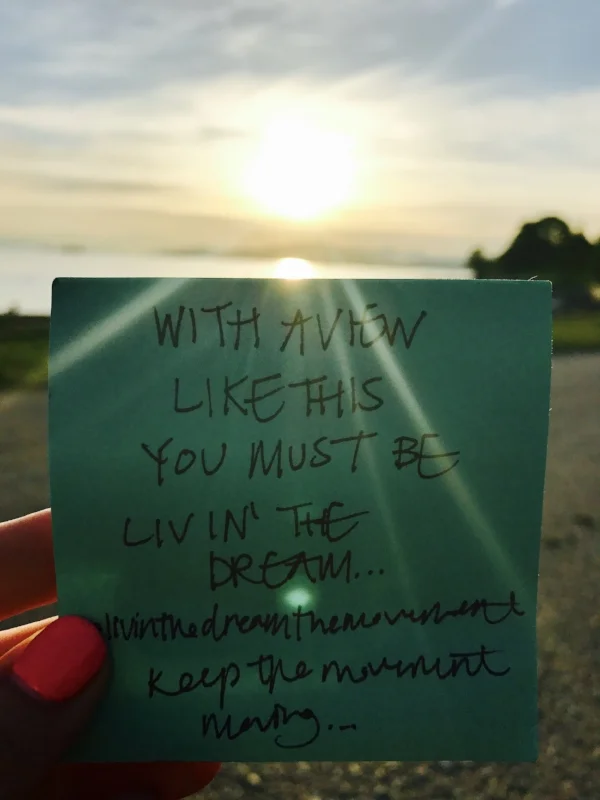 WITH A VIEW
LIKE THIS
YOU MUST BE
LIVIN' THE
DREAM...
livinthedreamthemovement
Keep the movement
moving...